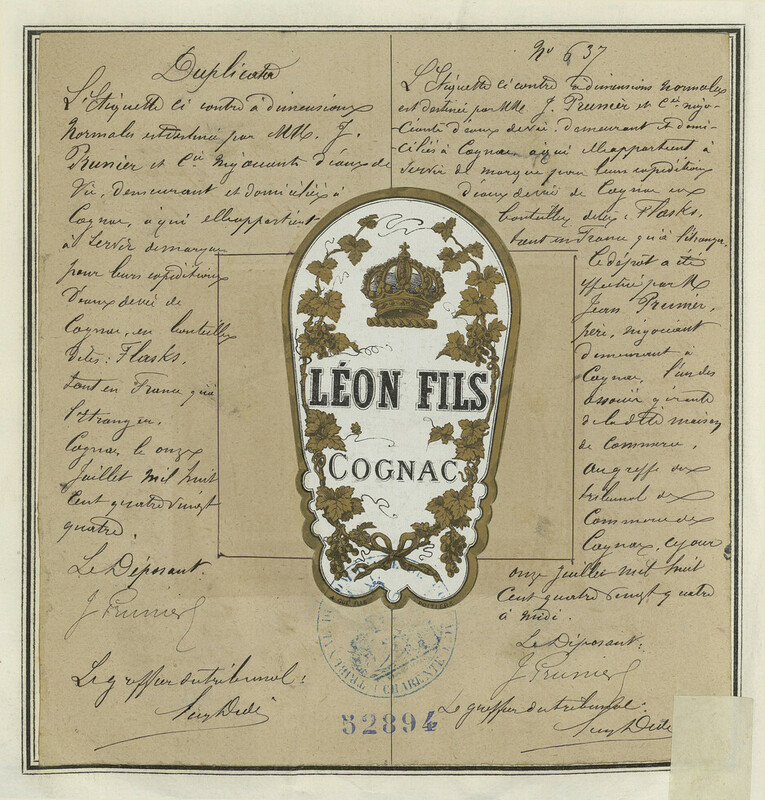 Duplicata
L'Etiquette ci contre à dimensions
normales est destinée par MM. J.
Prunier et Cie négociants d'eaux de
Vie, demeurant et domiciliés à
Cognac, à qui elle appartient
à servir de marque
pour leurs expéditions
d'eaux de vie de
Cognac, en bouteilles
dites : Flasks,
tant en France qu'à
l'étranger.
Cognac, le onze
Juillet mil huit
cent quatre vingt
quatre.
Le Déposant.
J Prunier
Le greffier du tribunal :
No 637
L'Etiquette ci contre à dimensions normales
est destinée par MM. J. Prunier et Cie négo-
ciants d'eaux de vie demeurant et domi-
ciliés à Cognac à qui elle appartient à
servir de marque pour leurs expéditions
d'eaux de vie de Cognac en
bouteilles dites : Flasks,
tant en France qu'à l'étranger.
Le dépôt a été
effectué par M
Jean Prunier,
père, négociant
demeurant à
Cognac, l'un des
associés gérants
de la dite maison
de Commerce,
au greffe du
tribunal de
Commerce de
Cognac, ce jour
onze Juillet mil huit
cent quatre vingt quatre
à midi.
Le Déposant :
J Prunier
Le greffier du tribunal :
LÉON FILS
COGNAC
CHARENTE
52894